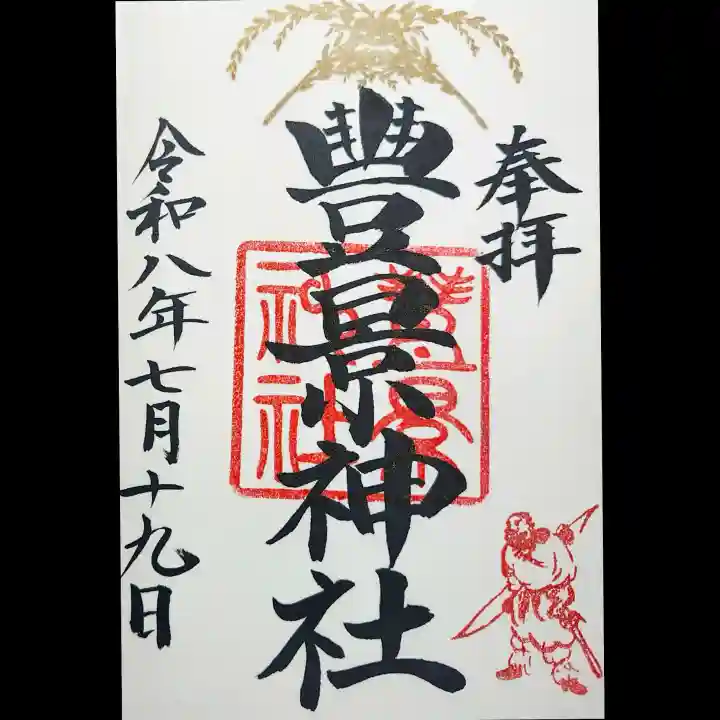 奉拝
豊景神社
豊景神社
令和八年七月十九日